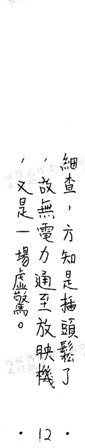 細查，方知是插頭鬆了
，故無電力通至放映機
，又是一場虛驚。
·12·